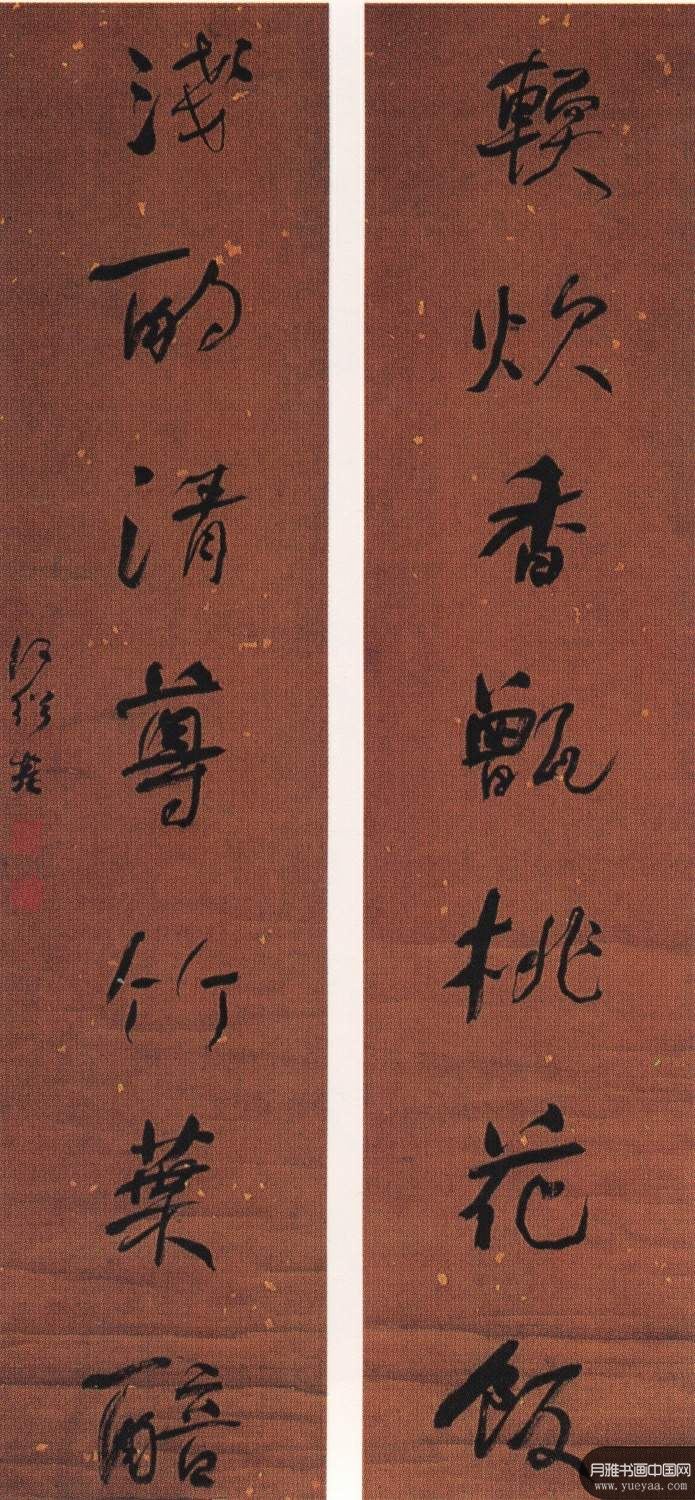 輭炊香甑桃花飯
淺酌清尊竹葉醅
何紹基
月雅书画中国网
www.yueyaa.com